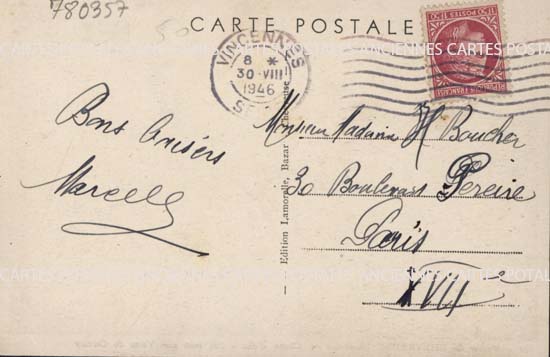 780357
50
CARTE POSTALE
VINCENNES
8 *
30 - VIII
1946
S
1F50 POSTES 1F50
REPUBLIQUE FRANCAISE
ANCIENNES CARTES POSTALES
Bons Baisers
Marcelle
Monsieur Madame H Boucher
30 Boulevard Pereire
Paris
XVIIe
— Edition Lamorelle, Bazar
CARTES POSTALES ANCIENNES CARTES POSTALES ANCIENNES CARTES POSTAL